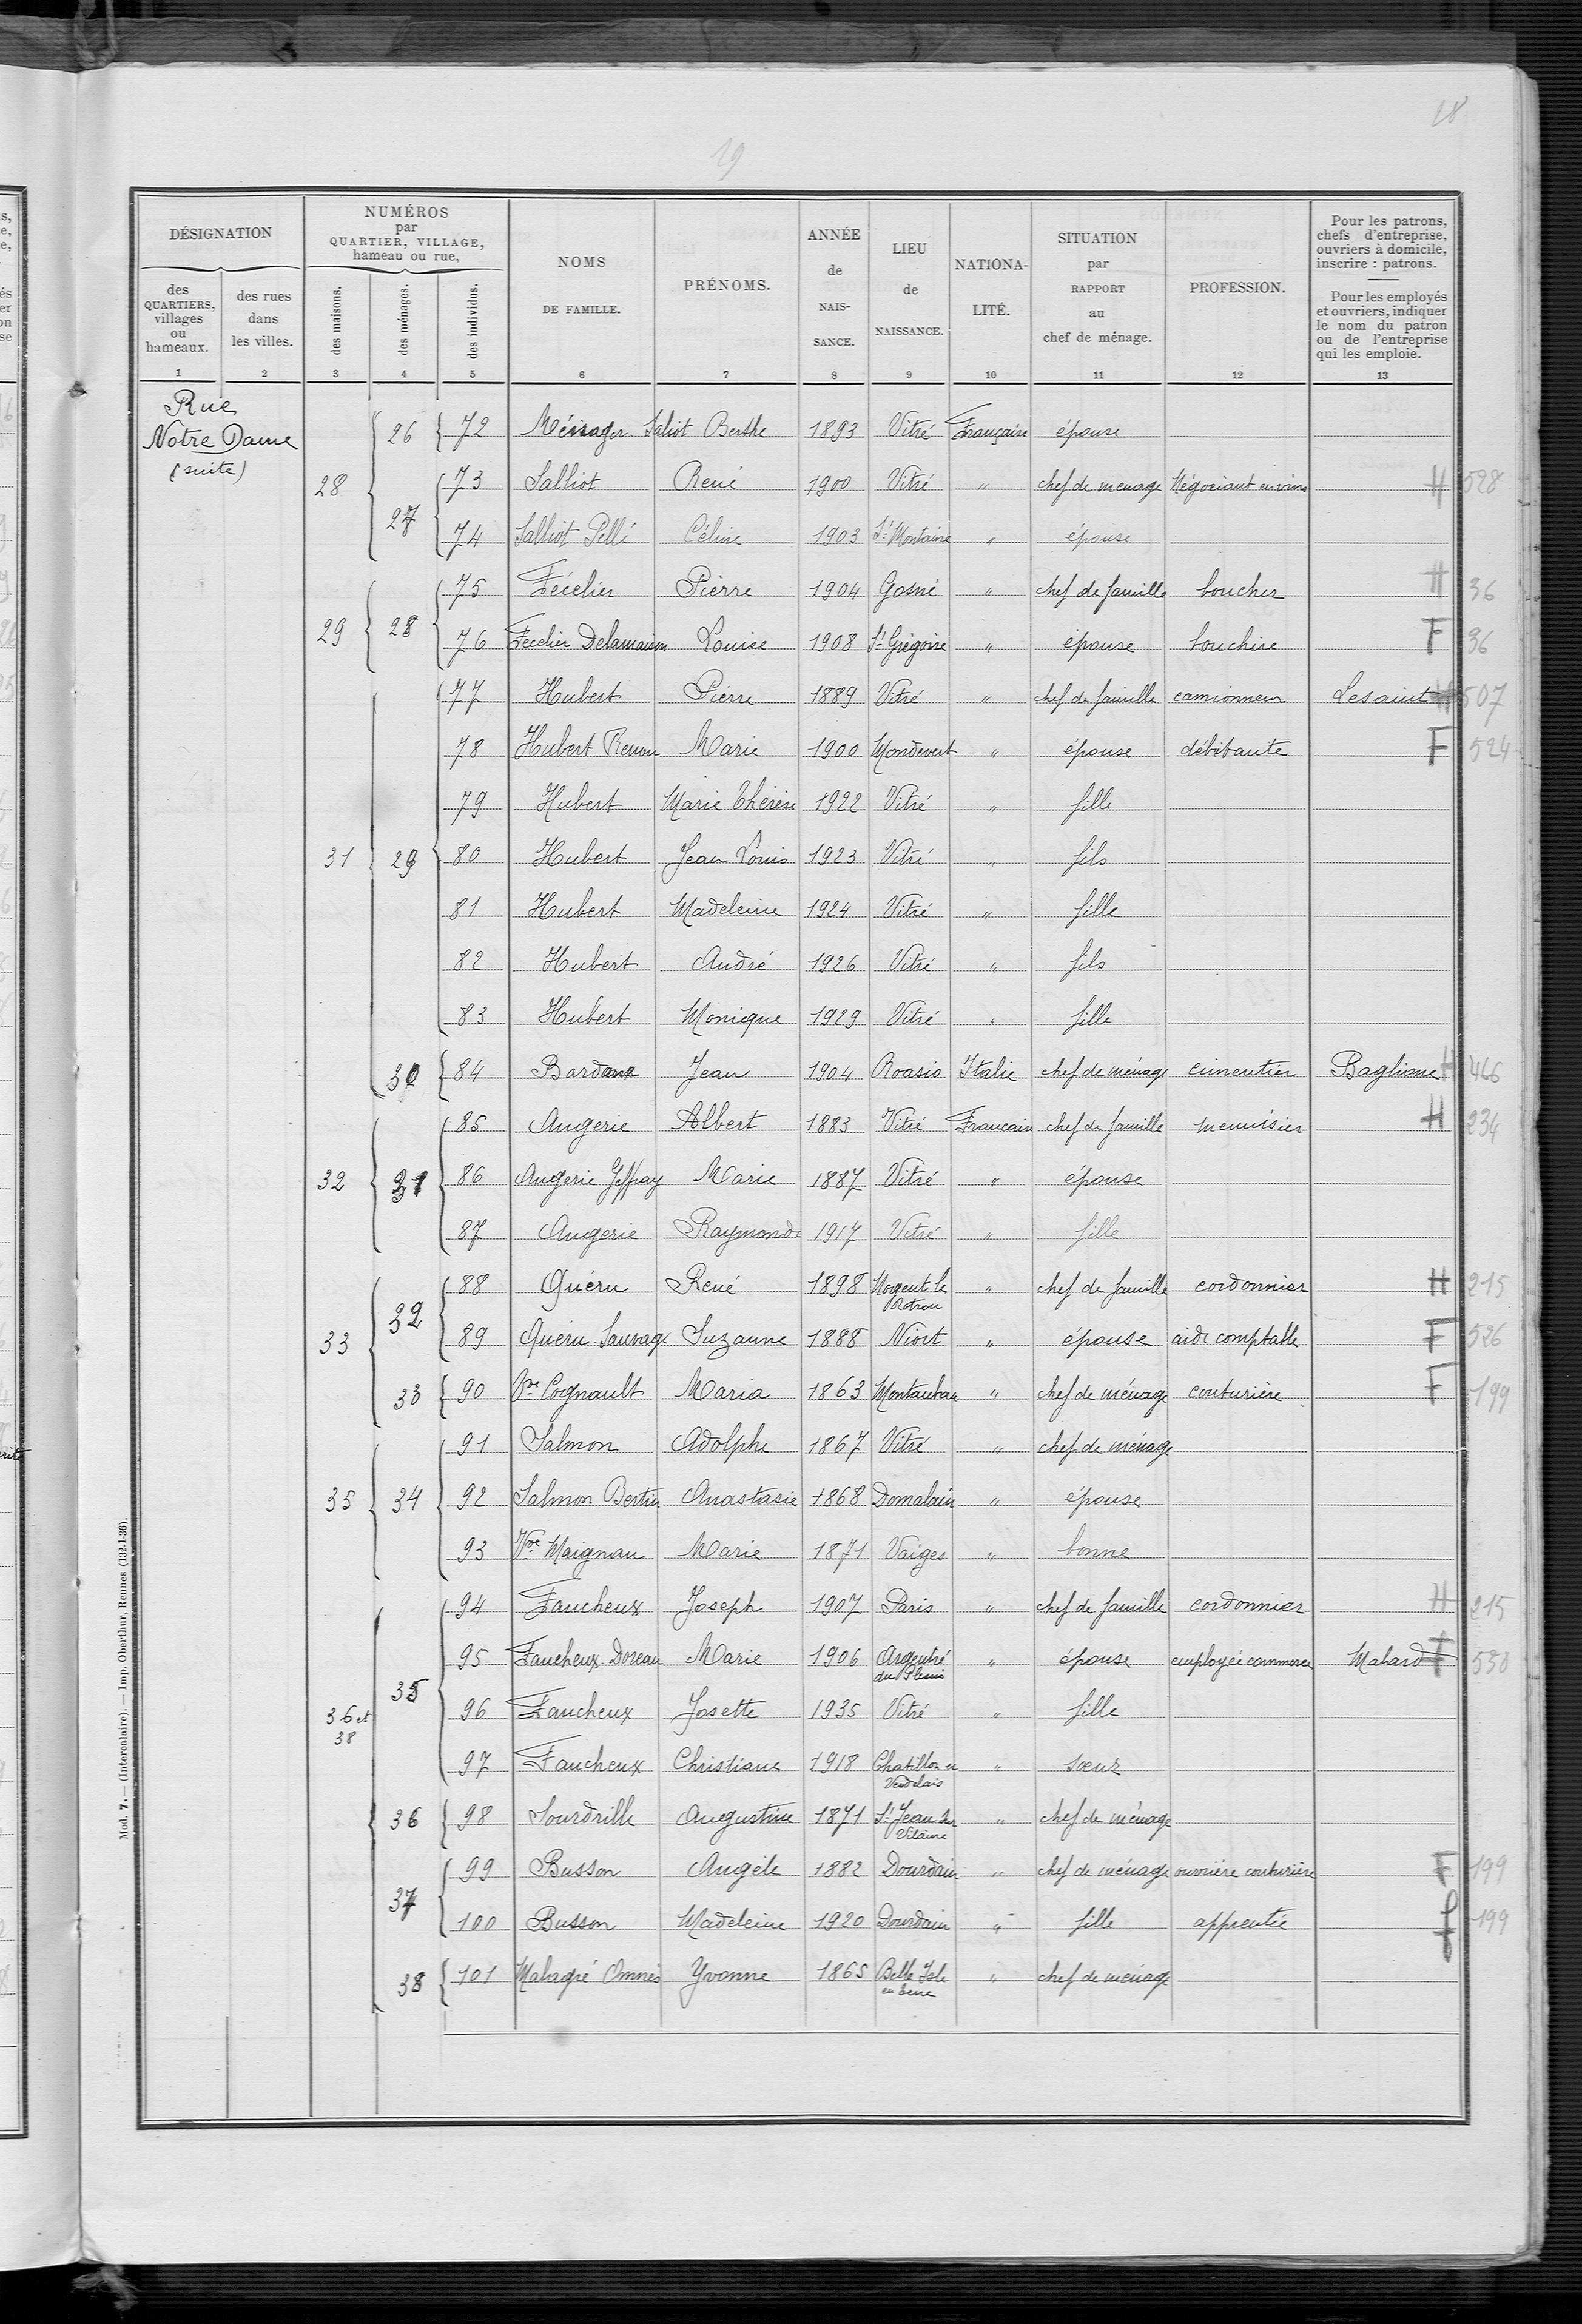 18
19
DÉSIGNATION
NUMÉROS
par
QUARTIER, VILLAGE,
hameau ou rue,
des
QUARTIERS,
villages
ou
hameaux.
des rues
dans
les villes.
des maisons.
des ménages.
des individus.
NOMS
DE FAMILLE.
PRÉNOMS.
ANNÉE
de
NAIS-
SANCE.
LIEU
de
NAISSANCE.
NATIONA-
LITÉ.
SITUATION
par
RAPPORT
au
chef de ménage.
PROFESSION.
Pour les patrons,
chefs d'entreprise,
ouvriers à domicile,
inscrire : patrons.
Pour les employés
et ouvriers, indiquer
le nom du patron
ou de l'entreprise
qui les emploie.
1 2 3 4 5 6 7 8 9 10 11 12 13
Rue
Notre Dame
(suite)
26 72 Saliot Berthe 1893 Vitré Française épouse
28 27 73 Salliot René 1900 Vitré " chef de menage Négociant en vins H 528
74 Salliot Pellé Céline 1903 St Montaine " épouse
29 28 75 Fécelier Pierre 1904 Gosné " chef de famille boucher H 36
76 Fecelier Delamaison Louise 1908 St Grégoire " épouse bouchère F 36
31 29 77 Hubert Pierre 1889 Vitré " chef de famille camionneur Lesaint H 507
78 Hubert Renou Marie 1900 Mondevert " épouse débitante F 524
79 Hubert Marie Thérèse 1922 Vitré " fille
80 Hubert Jean Louis 1923 Vitré " fils
81 Hubert Madeleine 1924 Vitré " fille
82 Hubert André 1926 Vitré " fils
83 Hubert Monique 1929 Vitré " fille
30 84 Jean 1904 Roasio Italie chef de ménage cimentier Baglione H 466
32 31 85 Augerie Albert 1883 Vitré Français chef de famille menuisier H 234
86 Augerie Geffray Marie 1887 Vitré " épouse
87 Augerie Raymonde 1917 Vitré " fille
33 32 88 Quéru René 1898 Nogent le Rotrou " chef de famille cordonnier H 215
89 Quéru Sauvage Suzanne 1888 Niort " épouse aide comptable F 526
33 90 Vve Cognault Maria 1863 Montauban " chef de ménage couturière F 199
35 34 91 Salmon Adolphe 1867 Vitré " chef de ménage
92 Salmon Bertin Anastasie 1868 Domalain " épouse
93 Vve Maignan Marie 1871 Vaiges " bonne
36 et 38 35 94 Faucheux Joseph 1907 Paris " chef de famille cordonnier H 215
95 Faucheux Doreau Marie 1906 Argentré du Plessis " épouse employée commerce Mahard F 530
96 Faucheux Josette 1935 Vitré " fille
97 Faucheux Christiane 1918 Chatillon en Vendelais " sœur
36 98 Sourdrille Augustine 1871 St Jean sur Vilaine " chef de ménage
37 99 Busson Angèle 1882 Dourdain " chef de ménage ouvrière couturière F 199
100 Busson Madeleine 1920 Dourdain " fille apprentie f 199
38 101 Malagré Omnès Yvonne 1865 Belle Isle en terre " chef de ménage
Mod. 7. — (Intercalaire). — Imp. Oberthur, Rennes (132-1-36).